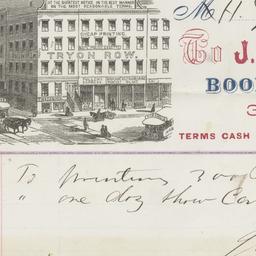 AT THE SHORTEST NOTICE IN THE BEST MANNER
ON THE MOST REASONABLE TERMS.
CHEAP PRINTING
TRYON ROW.
M H.
To J.
BOO
TERMS CASH
To printing 300 C
" one doz Show Car